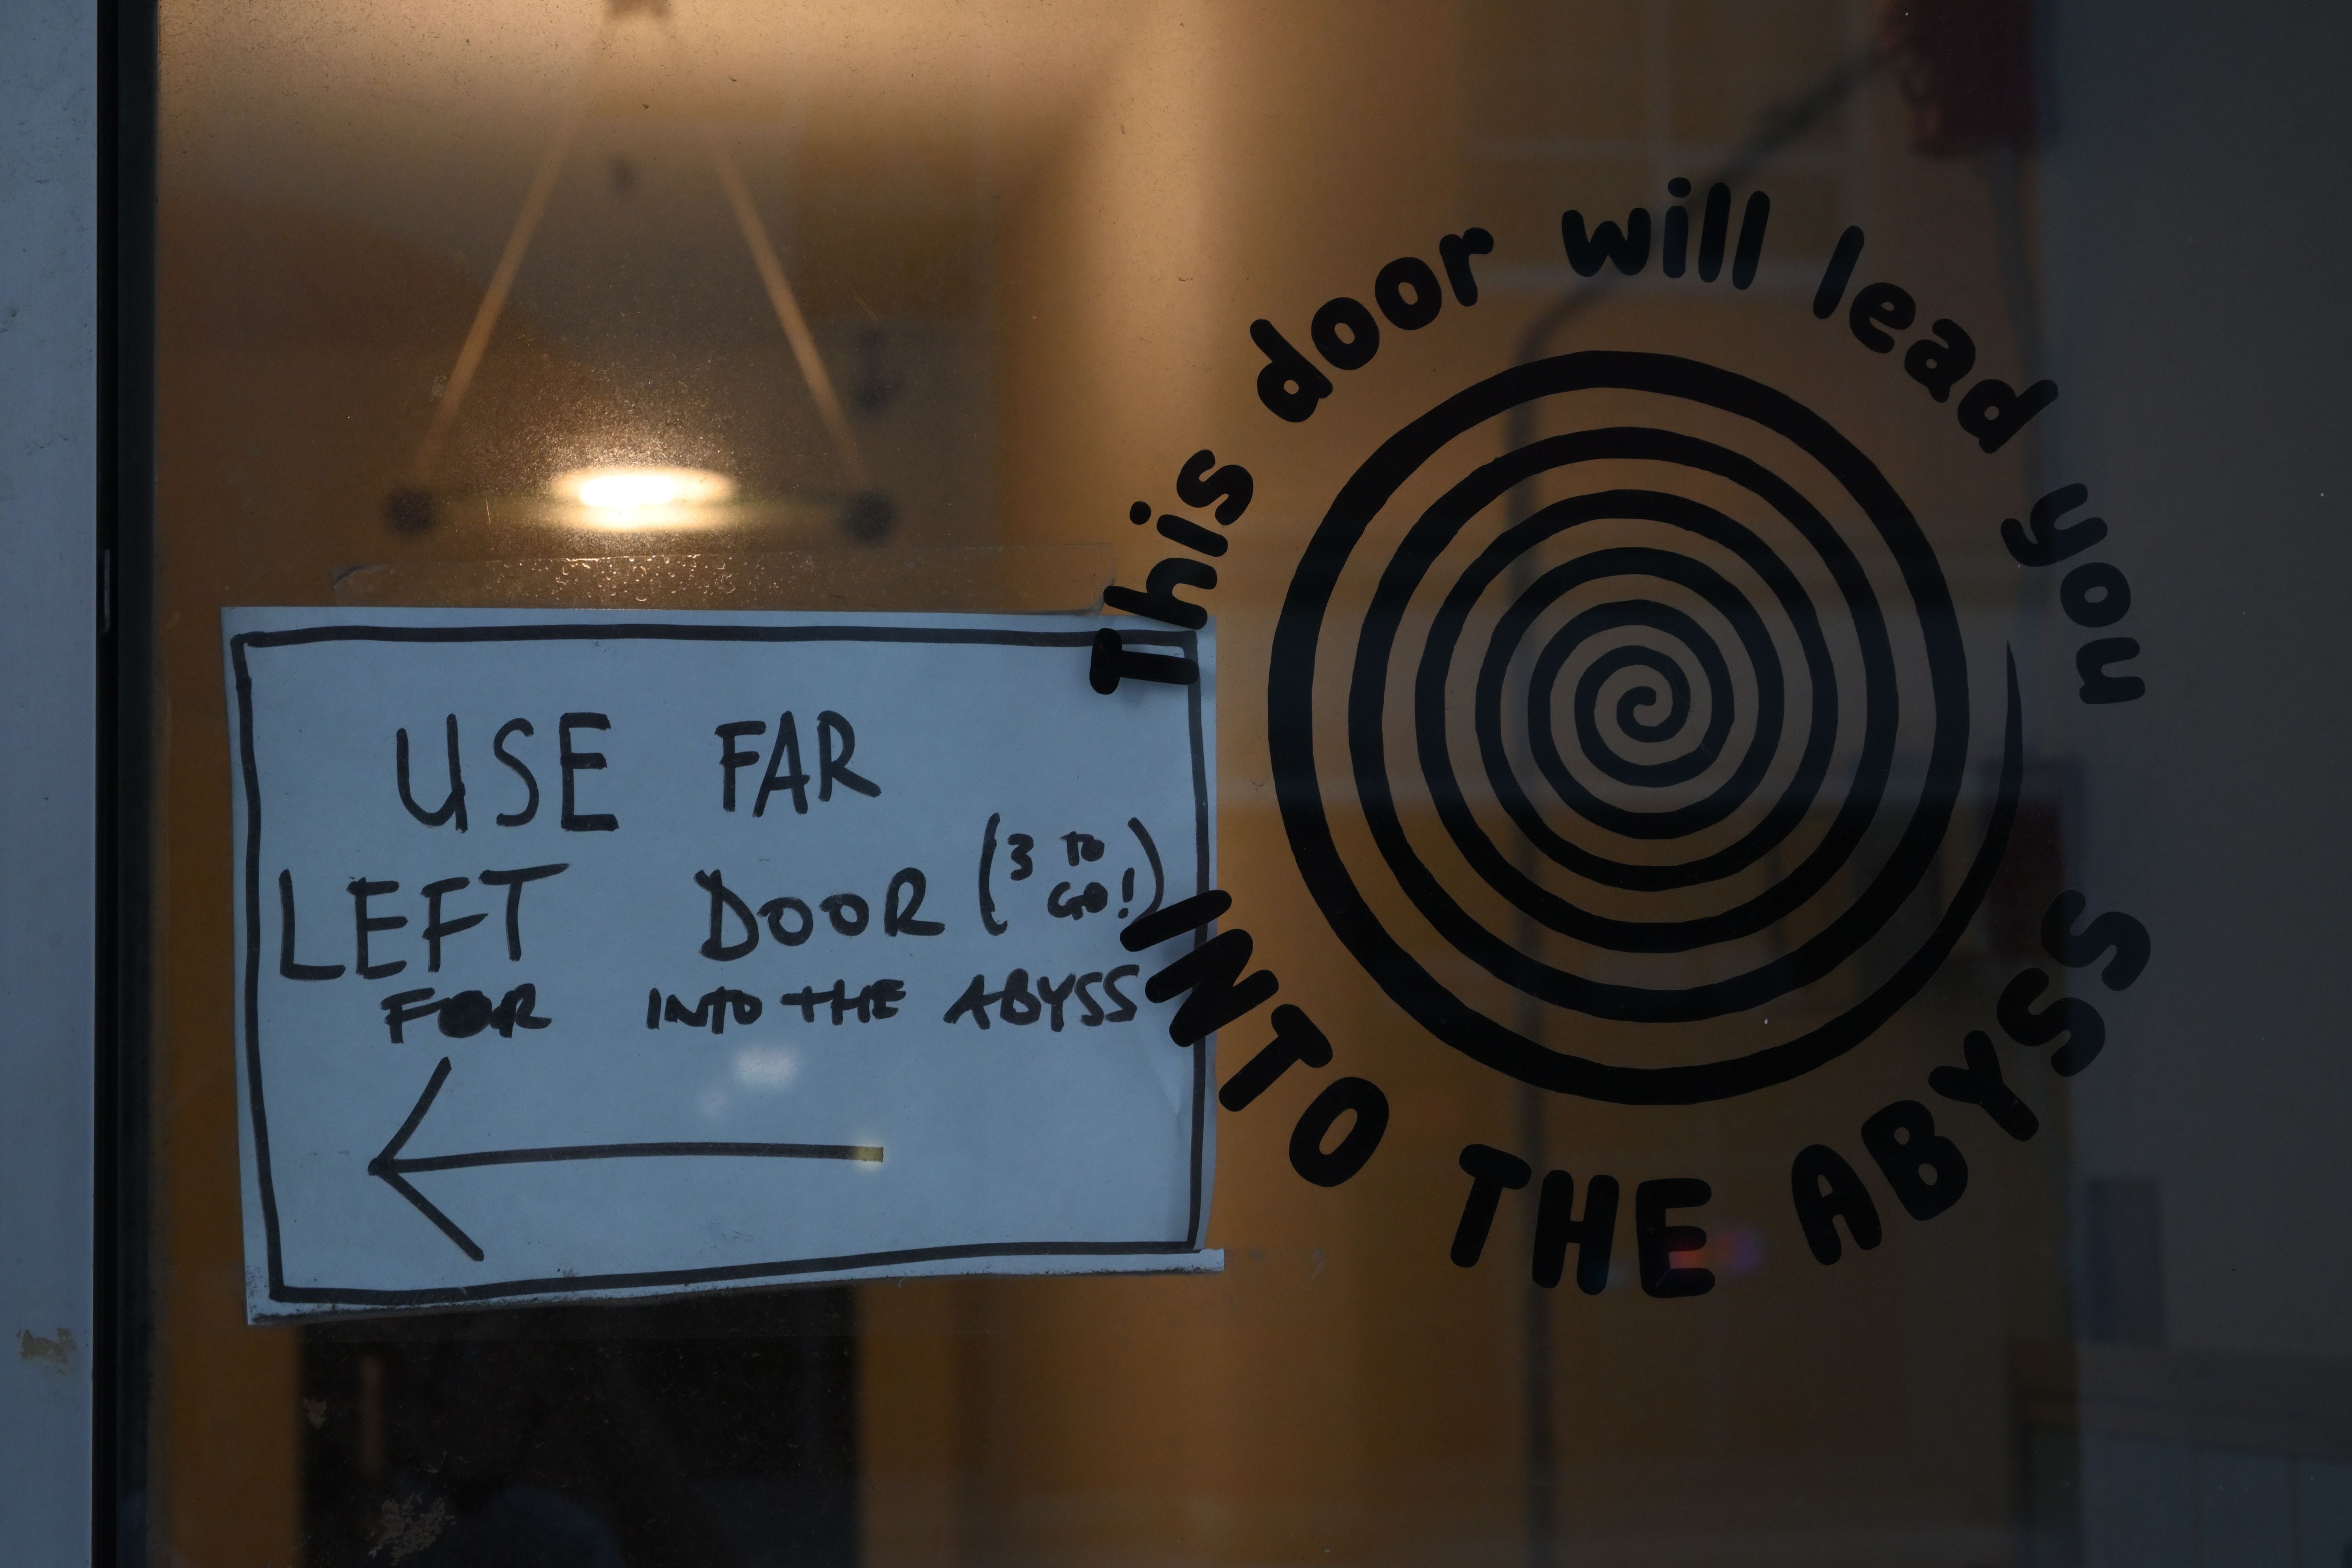 USE FAR
LEFT DOOR (3 TO GO!)
FOR INTO THE ABYSS
This door will lead you
INTO THE ABYSS